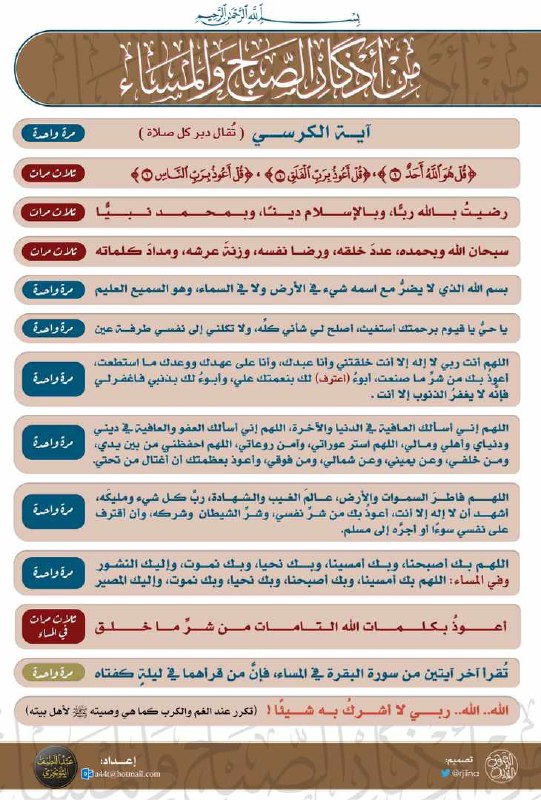 بِسْمِ اللَّهِ الرَّحْمَنِ الرَّحِيمِ
مِنْ أَذْكَارِ الصَّبَاحِ وَالْمَسَاءِ
آيـة الكرسـي ( تُقال دبر كل صلاة )
مرة واحدة
﴿قُلْ هُوَ اللَّهُ أَحَدٌ ۝١﴾، ﴿قُلْ أَعُوذُ بِرَبِّ الْفَلَقِ ۝١﴾، ﴿قُلْ أَعُوذُ بِرَبِّ النَّاسِ ۝١﴾
ثلاث مرات
رضيتُ بـالله ربًّا، وبـالإسـلام دينـًا، وبـمحـمـد نـبـيًّـا
ثلاث مرات
سبحان الله وبحمده، عددَ خلقه، ورضـا نفسه، وزنةَ عرشه، ومدادَ كلماته
ثلاث مرات
بسم الله الذي لا يضرُّ مع اسمه شيء في الأرض ولا في السماء، وهو السميع العليم
مرة واحدة
يا حيُّ يا قيوم برحمتك أستغيث، أصلح لي شأني كلَّه، ولا تكلني إلى نفسي طرفـة عين
مرة واحدة
اللهم أنت ربي لا إله إلا أنت خلقتني وأنا عبدك، وأنا على عهدك ووعدك ما استطعت،
أعوذ بـك من شرِّ ما صنعت، أبوءُ (أعترف) لك بنعمتك علي، وأبـوءُ لك بذنبي فاغفر لي
فإنَّه لا يغفرُ الذنوب إلا أنت .
مرة واحدة
اللهم إنـي أسـألك العافية في الدنيا والآخـرة، اللهم إني أسألك العفو والعافية في ديني
ودنياي وأهلي ومـالي، اللهم استر عوراتي، وآمـن روعاتي، اللهم احفظني من بين يدي،
ومن خلفي، وعن يميني، وعن شمالي، ومن فوقي، وأعوذ بعظمتك أن أغتال من تحتي.
مرة واحدة
اللهـم فاطـرَ السموات والأرض، عالـمَ الغيب والشـهادة، ربَّ كـل شيء ومليكَه،
أشهـد أن لا إله إلا أنت، أعوذُ بك من شرِّ نفسي، وشرِّ الشيطان وشركه، وأن أقترف
على نفسي سوءًا أو أجرَّه إلى مسلم.
مرة واحدة
اللهـم بـك أصبحنـا، وبـك أمسينـا، وبـك نحيـا، وبـك نمـوت، وإليـك النشـور
وفي المساء: اللهم بك أمسينا، وبك أصبحنا، وبك نحيا، وبك نموت، وإليك المصير
مرة واحدة
أعـوذُ بـكلـمـات الله الـتـامـات مـن شـرِّ مـا خـلـق
ثلاث مرات
في المساء
تُقرأ آخر آيتين من سورة البقرة في المساء، فإنَّ من قرأهما في ليلةٍ كفتاه
مرة واحدة
الله.. الله.. ربـي لا أشركُ بـه شـيئًـا ! (تكرر عند الغم والكرب كما هي وصيته ﷺ لأهل بيته)
تصميم:
@rjlina
إعـداد:
a44t@hotmail.com
عبد اللطيف
التويجري